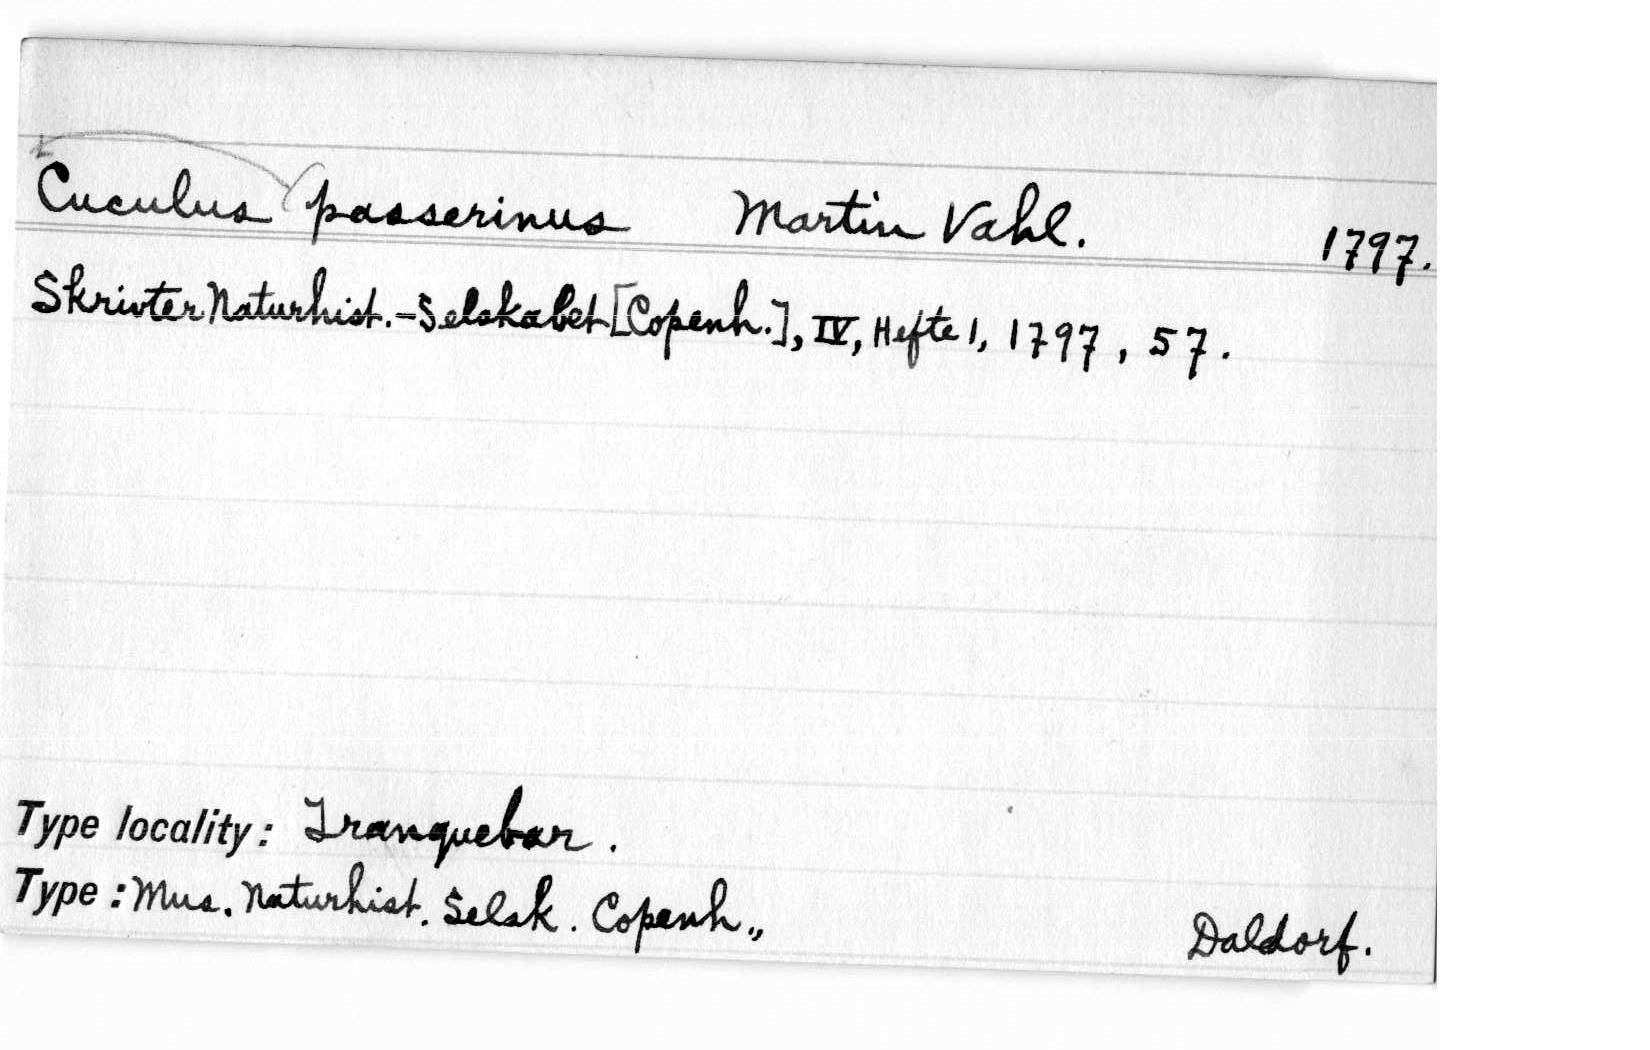 Cuculus passerinus Martin Vahl. 1797.
Skrivter Naturhist.-Selskabet [Copenh.], IV, Hefte 1, 1797, 57.
Type locality: Tranquebar.
Type: Mus. Naturhist. Selsk. Copenh., Daldorf.